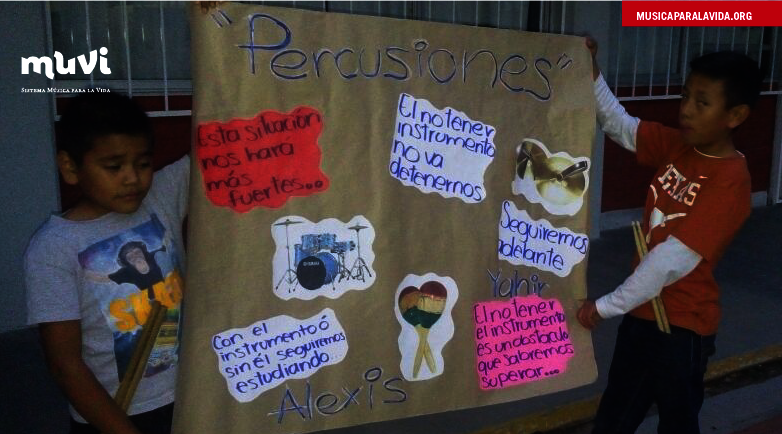 MUSICAPARALAVIDA.ORG
muvi
SISTEMA MÚSICA PARA LA VIDA
"Percusiones"
Esta situacion
nos hará
más
fuertes...
El no tener
instrumento
no va
detenernos
Seguiremos
adelante
Yahir
El no tener
el instrumento
es un obstaculo
que sabremos
superar...
Con el
instrumento ó
sin él seguiremos
estudiando...
Alexis
TEXAS
YAMAHA